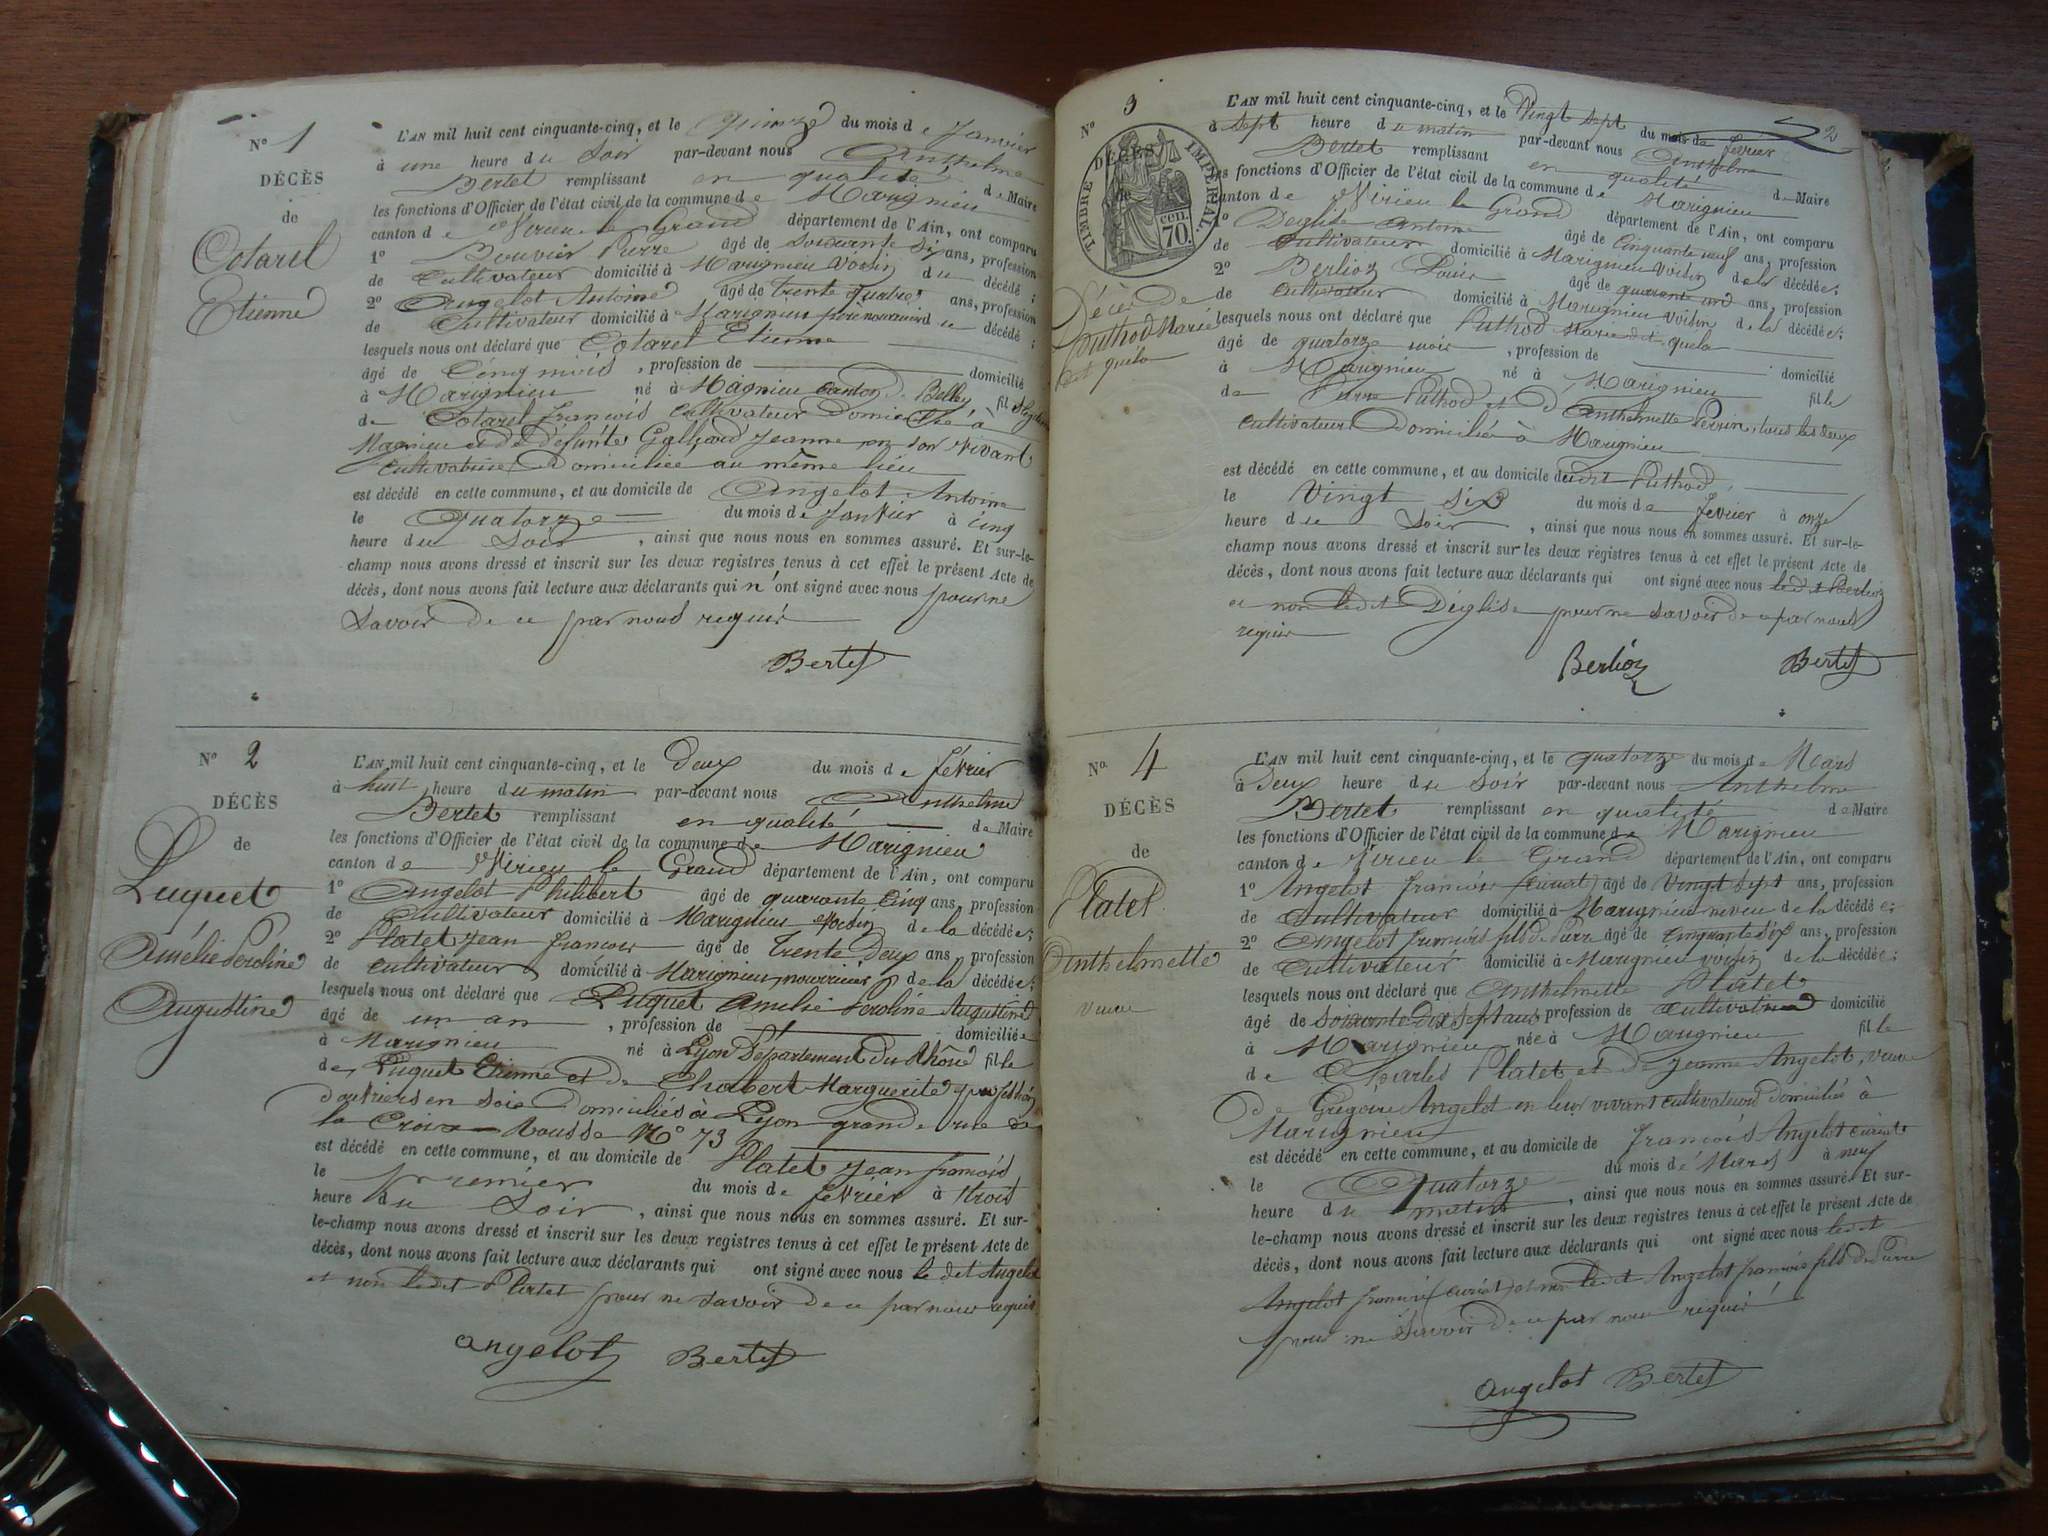 No 1
DÉCÈS
de
Cotarel
Etienne
L'AN mil huit cent cinquante-cinq, et le quinze du mois de Janvier
à une heure du Soir par-devant nous Anthelme
Bertet remplissant en qualité de Maire
les fonctions d'Officier de l'état civil de la commune de Marignieu
canton de Virieu le Grand département de l'Ain, ont comparu
1o Bouvier Pierre âgé de Soixante Six ans, profession
de Cultivateur domicilié à Marignieu Voisin du décédé ;
2o Angelot Antoine âgé de trente quatre ans, profession
de Cultivateur domicilié à Marignieu du décédé ;
lesquels nous ont déclaré que Cotarel Etienne
âgé de Cinq mois, profession de domicilié
à Marignieu né à Magnieu Canton de Belley fils
de Cotarel françois Cultivateur Domicilié à
Magnieu et de défunte Jeanne en son Vivant
Cultivatrice Domiciliée au même lieu
est décédé en cette commune, et au domicile de Angelot Antoine
le quatorze du mois de Janvier à cinq
heure du Soir, ainsi que nous nous en sommes assuré. Et sur-le-
champ nous avons dressé et inscrit sur les deux registres tenus à cet effet le présent Acte de
décès, dont nous avons fait lecture aux déclarants qui n'ont signé avec nous pour ne
Savoir de ce par nous requis
Bertet
No 2
DÉCÈS
de
Luquet
Amélie Peroline
Augustine
L'AN mil huit cent cinquante-cinq, et le Deux du mois de février
à huit heure du matin par-devant nous Anthelme
Bertet remplissant en qualité de Maire
les fonctions d'Officier de l'état civil de la commune de Marignieu
canton de Virieu le Grand département de l'Ain, ont comparu
1o Angelot Philibert âgé de quarante Cinq ans, profession
de Cultivateur domicilié à Marignieu Voisin de la décédée ;
2o Platet Jean francois âgé de Trente Deux ans, profession
de cultivateur domicilié à Marignieu, nourricier de la décédée ;
lesquels nous ont déclaré que Luquet Amelie Peroline Augustine
âgé de un an, profession de domiciliée
à Marignieu né à Lyon Département du Rhône fille
de Luquet Etienne et de Chabert Marguerite profession
d'ouvriers en Soie Domiciliés à Lyon grande rue de
la Croix Rousse No 73
est décédé en cette commune, et au domicile de Platet Jean francois
le premier du mois de février à trois
heure du Soir, ainsi que nous nous en sommes assuré. Et sur-
le-champ nous avons dressé et inscrit sur les deux registres tenus à cet effet le présent Acte de
décès, dont nous avons fait lecture aux déclarants qui ont signé avec nous le dit Angelot
et non ledit Platet pour ne Savoir de ce par nous requis
angelot Bertet
2
No 3
DÉCÈS
de
TIMBRE IMPÉRIAL
70 cen.
Décès de
Puthod Marie
dit quela
L'AN mil huit cent cinquante-cinq, et le Vingt sept du mois de février
à Sept heure du matin par-devant nous Anthelme
Bertet remplissant en qualité de Maire
les fonctions d'Officier de l'état civil de la commune de Marignieu
canton de Virieu le Grand département de l'Ain, ont comparu
1o Deglise Antoine âgé de Cinquante neuf ans, profession
de Cultivateur domicilié à Marignieu Voisin de la décédée ;
2o Berlioz Louis âgé de quarante ans, profession
de Cultivateur domicilié à Marignieu Voisin de la décédée ;
lesquels nous ont déclaré que Puthod Marie dit quela
âgé de quatorze mois, profession de domicilié
à Marignieu né à Marignieu fille
de Pierre Puthod et d'Anthelmette Perrin, tous les deux
Cultivateurs Domiciliés à Marignieu
est décédé en cette commune, et au domicile dudit Puthod
le Vingt Six du mois de février à onze
heure du Soir, ainsi que nous nous en sommes assuré. Et sur-le-
champ nous avons dressé et inscrit sur les deux registres tenus à cet effet le présent Acte de
décès, dont nous avons fait lecture aux déclarants qui ont signé avec nous ledit Berlioz
et non ledit Déglise pour ne savoir de ce par nous
requis
Berlioz Bertet
No 4
DÉCÈS
de
Platet
Anthelmette
Veuve
L'AN mil huit cent cinquante-cinq, et le quatorze du mois de Mars
à Deux heure du Soir par-devant nous Anthelme
Bertet remplissant en qualité de Maire
les fonctions d'Officier de l'état civil de la commune de Marignieu
canton de Virieu le Grand département de l'Ain, ont comparu
1o Angelot francois (Curiat) âgé de Vingt Sept ans, profession
de Cultivateur domicilié à Marignieu neveu de la décédée ;
2o Angelot francois fils de Pierre âgé de Cinquante Six ans, profession
de Cultivateur domicilié à Marignieu voisin de la décédée ;
lesquels nous ont déclaré que Anthelmette Platet
âgé de Soixante Dix Sept ans profession de Cultivatrice domicilié
à Marignieu née à Marignieu fille
de Charles Platet et de Jeanne Angelot, veuve
de Gregoire Angelot en leur vivant cultivateurs Domiciliés à
Marignieu
est décédé en cette commune, et au domicile de francois Angelot curiat
le Quatorze du mois de Mars à neuf
heure du matin, ainsi que nous nous en sommes assuré. Et sur-
le-champ nous avons dressé et inscrit sur les deux registres tenus à cet effet le présent Acte de
décès, dont nous avons fait lecture aux déclarants qui ont signé avec nous ledit
Angelot francois (curiat) et non ledit Angelot francois fils de Pierre
pour ne Savoir de ce par nous requis
angelot Bertet